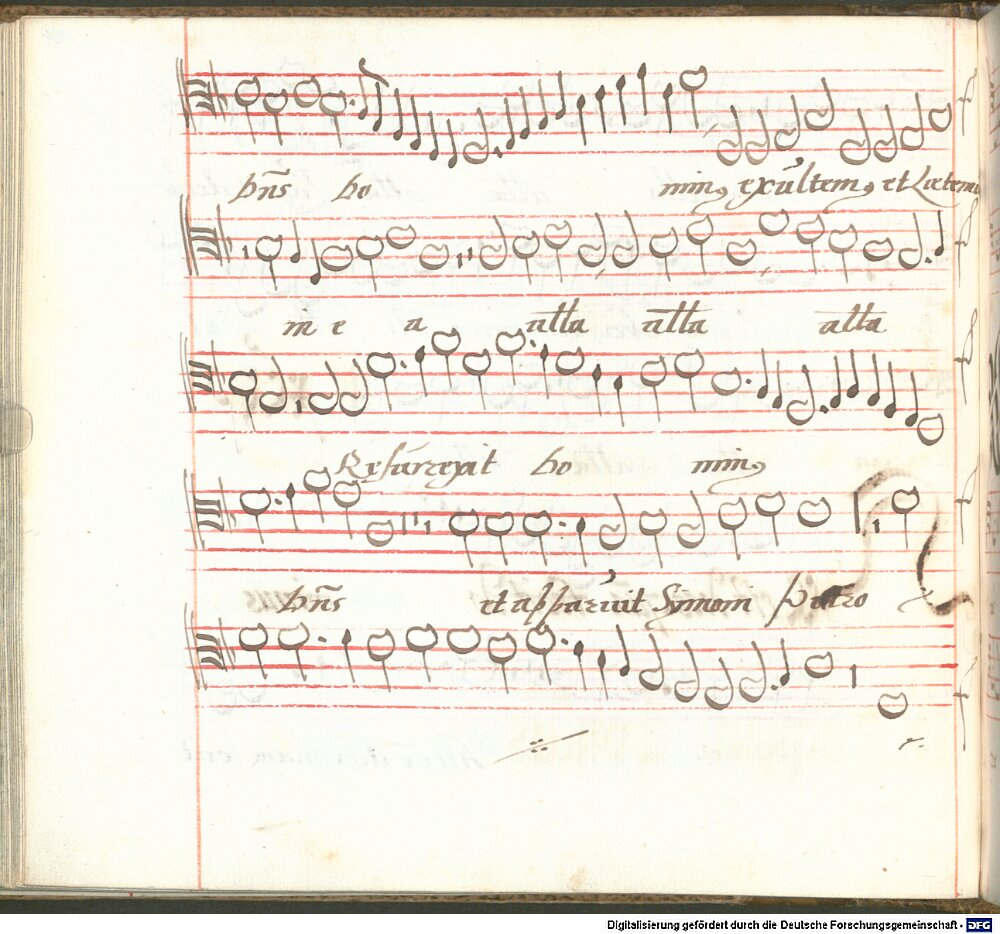 dn̄s do minꝰ exultemꝰ et Lætemu
in e a atta atta atta
Resurrexit do minꝰ
dn̄s et apparuit Symoni Petro
Digitalisierung gefördert durch die Deutsche Forschungsgemeinschaft - DFG